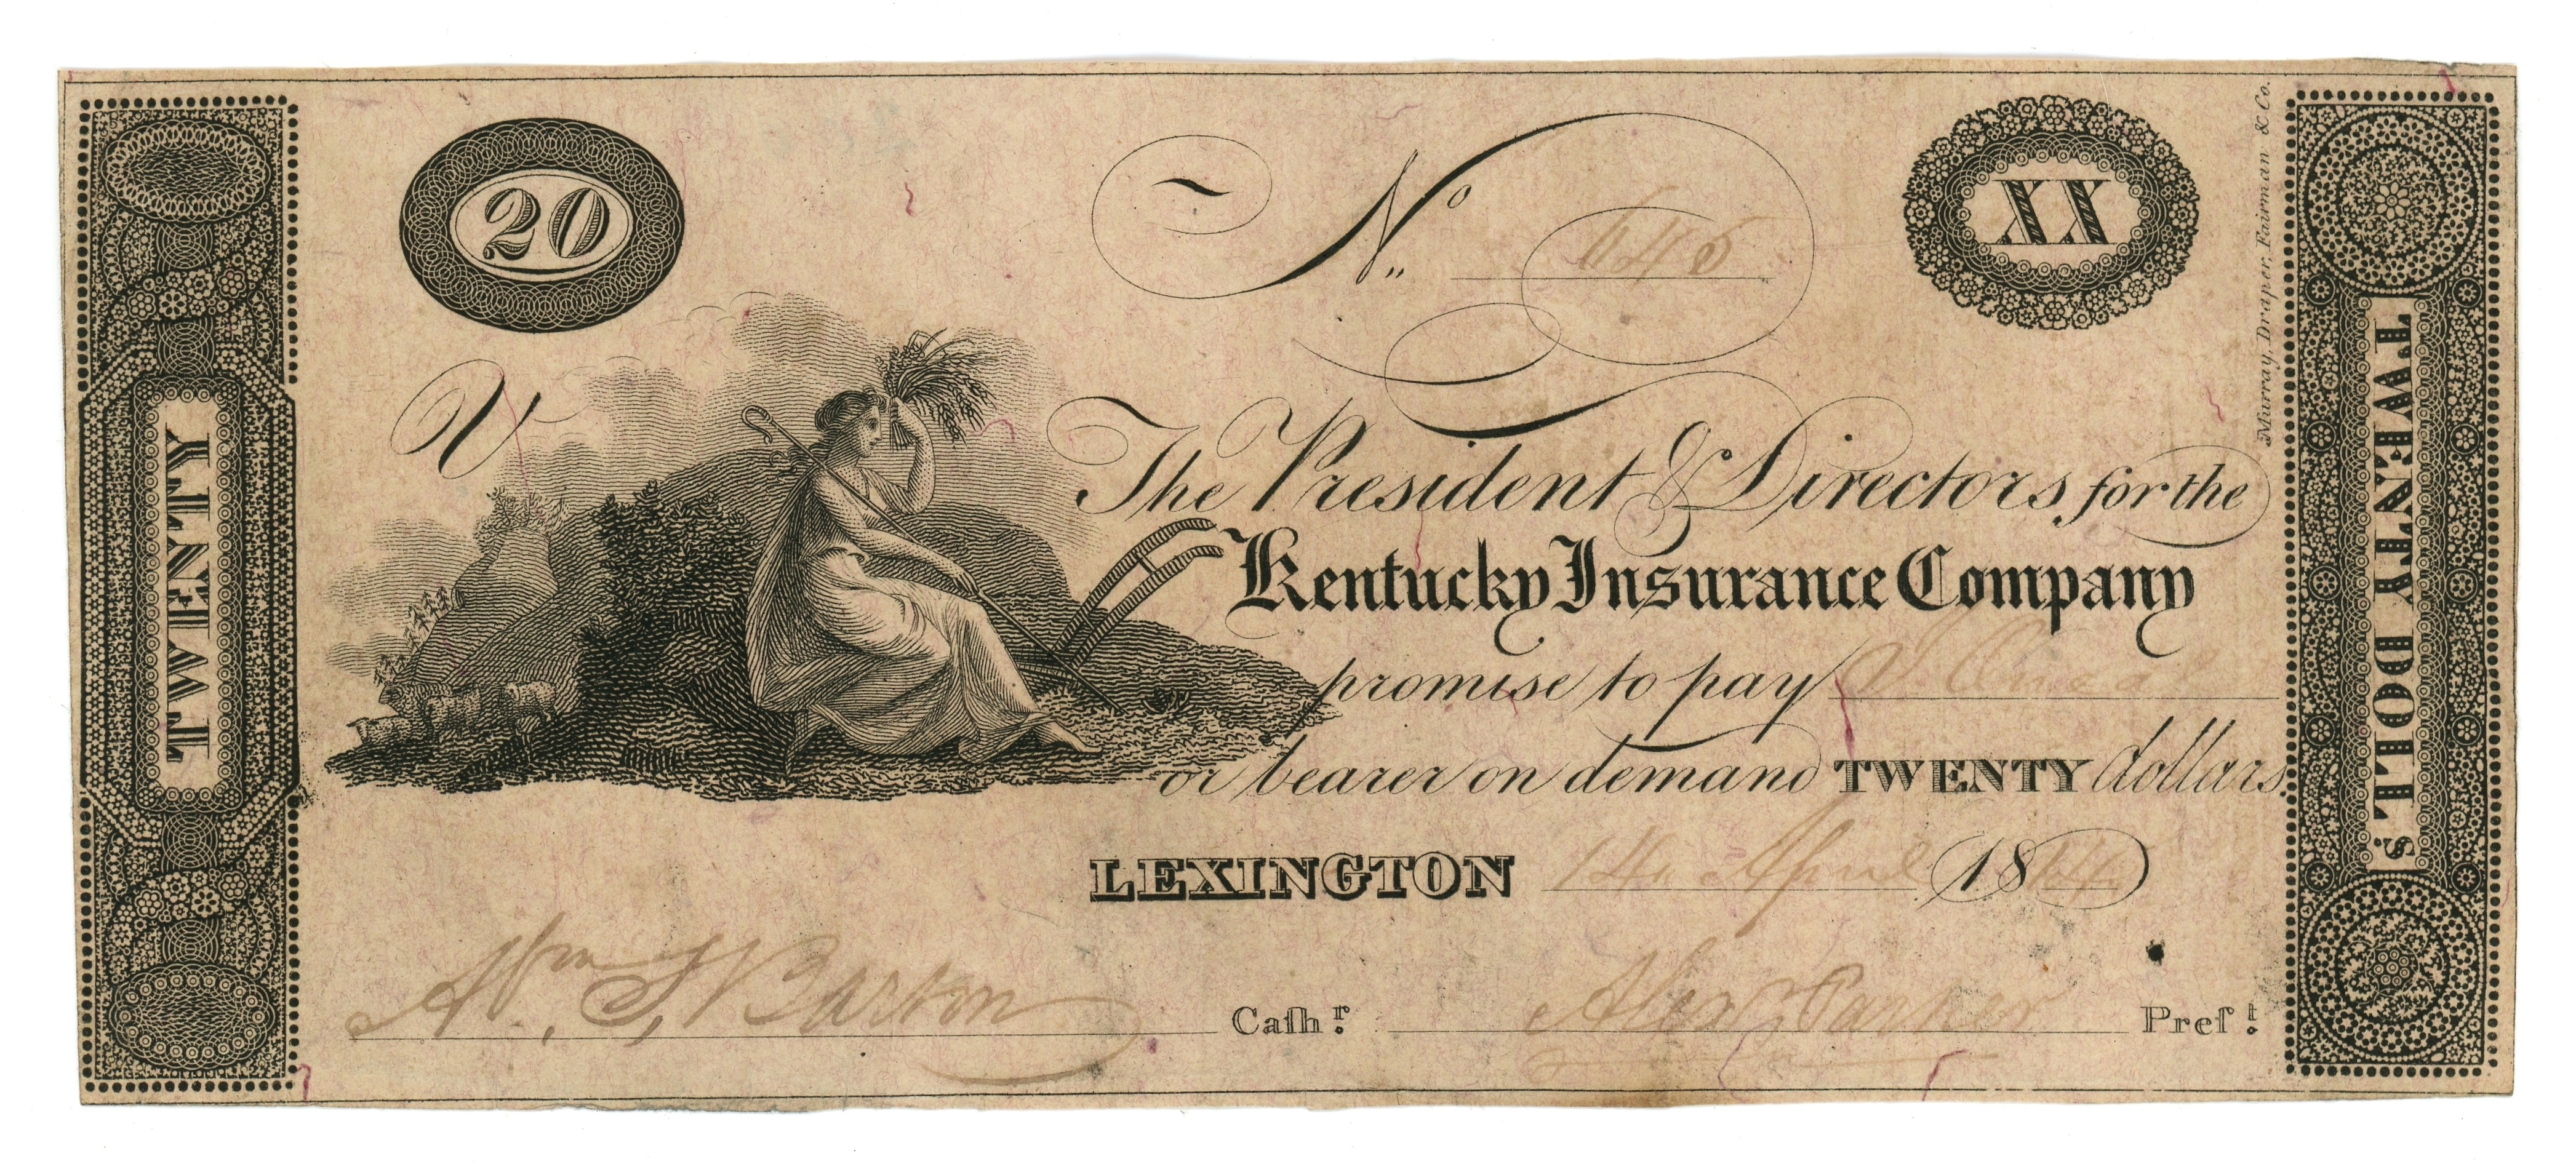 20
Nº 646
XX
V
The President & Directors for the
Kentucky Insurance Company
promise to pay
or bearer on demand TWENTY dollars.
LEXINGTON 14 April 1814
Wm. S. Barton Caſhr. Alexr. Parker Preſt.
TWENTY
TWENTY DOLLS.
Murray, Draper, Fairman & Co.